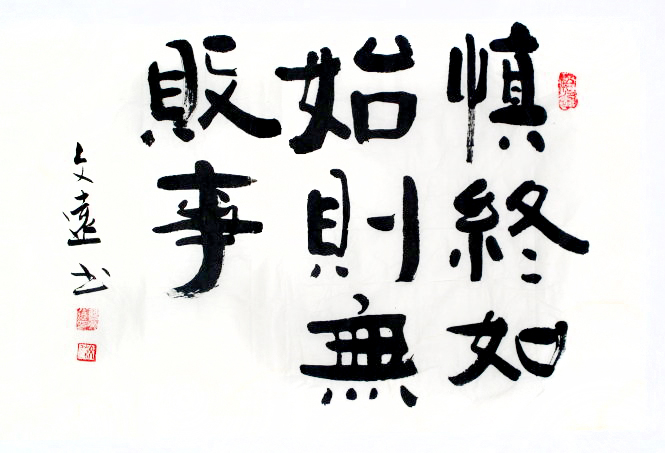 慎終如
始則無
敗事
文遠书